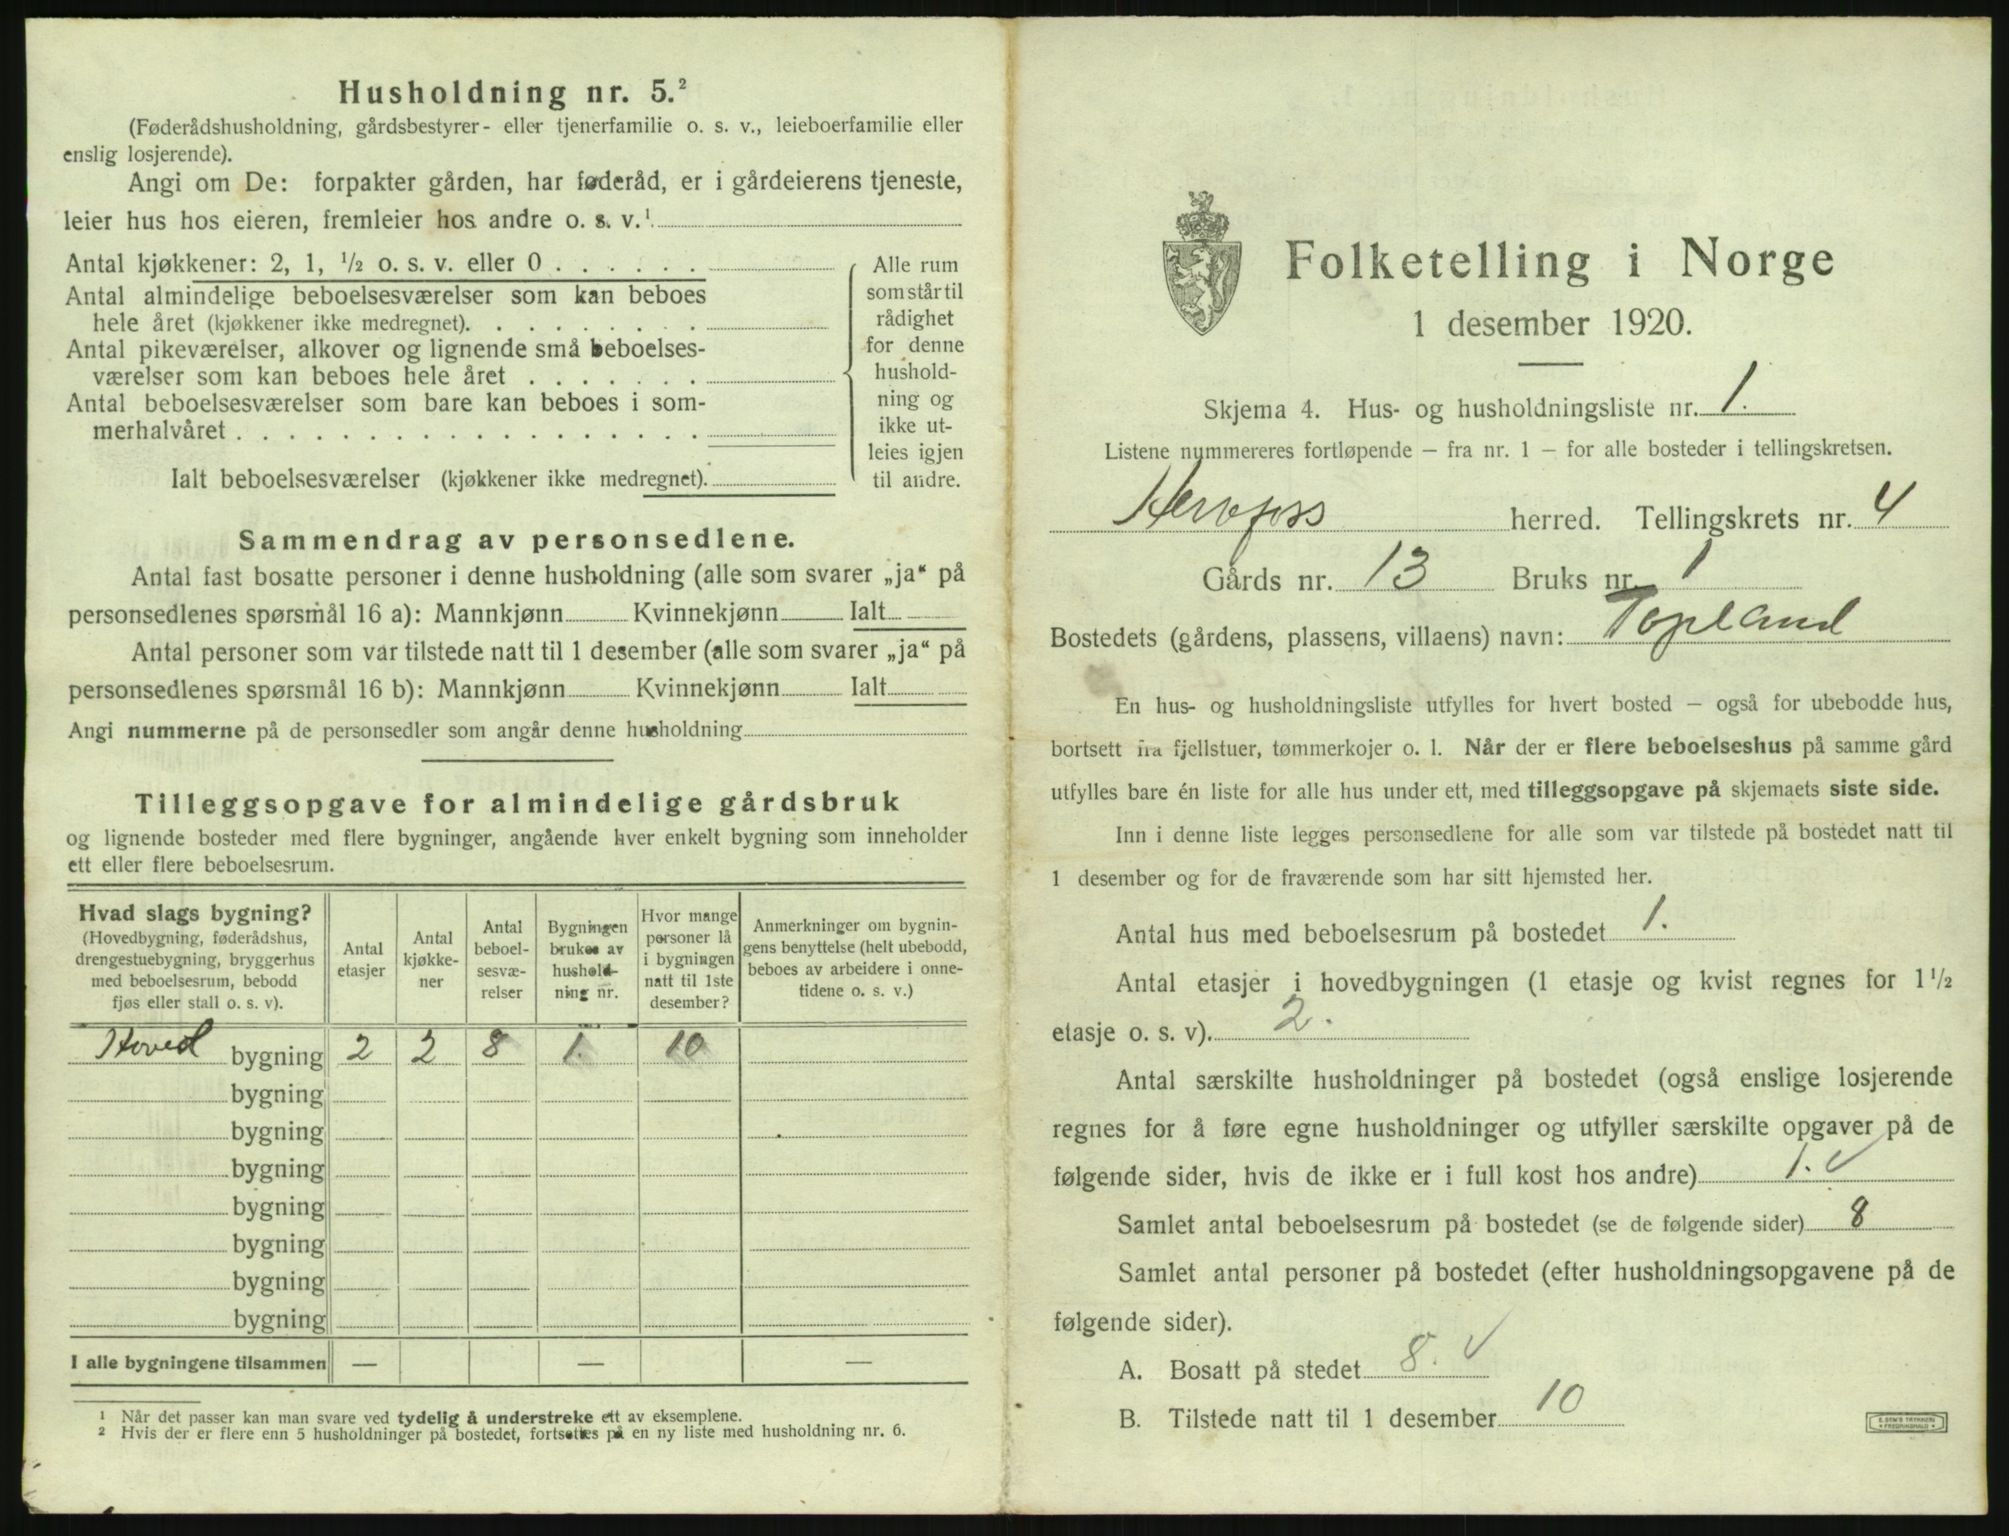 Husholdning nr. 5.²
(Føderådshusholdning, gårdsbestyrer- eller tjenerfamilie o. s. v., leieboerfamilie eller
enslig losjerende).
Angi om De: forpakter gården, har føderåd, er i gårdeierens tjeneste,
leier hus hos eieren, fremleier hos andre o. s. v.¹
Antal kjøkkener: 2, 1, ½ o. s. v. eller 0 . . . . . .
Antal almindelige beboelsesværelser som kan beboes
hele året (kjøkkener ikke medregnet). . . . . . . . .
Antal pikeværelser, alkover og lignende små beboelses-
værelser som kan beboes hele året . . . . . . .
Antal beboelsesværelser som bare kan beboes i som-
merhalvåret . . . . . . . . . . . . . . . . . .
Ialt beboelsesværelser (kjøkkener ikke medregnet).
Alle rum
som står til
rådighet
for denne
hushold-
ning og
ikke ut-
leies igjen
til andre.
Sammendrag av personsedlene.
Antal fast bosatte personer i denne husholdning (alle som svarer „ja“ på
personsedlenes spørsmål 16 a): Mannkjønn Kvinnekjønn Ialt
Antal personer som var tilstede natt til 1 desember (alle som svarer „ja“ på
personsedlenes spørsmål 16 b): Mannkjønn Kvinnekjønn Ialt
Angi nummerne på de personsedler som angår denne husholdning
Tilleggsopgave for almindelige gårdsbruk
og lignende bosteder med flere bygninger, angående hver enkelt bygning som inneholder
ett eller flere beboelsesrum.
Hvad slags bygning?
(Hovedbygning, føderådshus,
drengestuebygning, bryggerhus
med beboelsesrum, bebodd
fjøs eller stall o. s. v).
Antal
etasjer
Antal
kjøkke-
ner
Antal
beboel-
sesvæ-
relser
Bygningen
brukes av
hushold-
ning nr.
Hvor mange
personer lå
i bygningen
natt til 1ste
desember?
Anmerkninger om bygnin-
gens benyttelse (helt ubebodd,
beboes av arbeidere i onne-
tidene o. s. v.)
Hoved bygning 2 2 8 1. 10
bygning
bygning
bygning
bygning
bygning
bygning
bygning
I alle bygningene tilsammen — — —
¹ Når det passer kan man svare ved tydelig å understreke ett av eksemplene.
² Hvis der er flere enn 5 husholdninger på bostedet, fortsettes på en ny liste med husholdning nr. 6.
Folketelling i Norge
1 desember 1920.
Skjema 4. Hus- og husholdningsliste nr. 1.
Listene nummereres fortløpende – fra nr. 1 – for alle bosteder i tellingskretsen.
Herefoss herred. Tellingskrets nr. 4
Gårds nr. 13 Bruks nr. 1
Bostedets (gårdens, plassens, villaens) navn: Topland
En hus- og husholdningsliste utfylles for hvert bosted – også for ubebodde hus,
bortsett fra fjellstuer, tømmerkojer o. l. Når der er flere beboelseshus på samme gård
utfylles bare én liste for alle hus under ett, med tilleggsopgave på skjemaets siste side.
Inn i denne liste legges personsedlene for alle som var tilstede på bostedet natt til
1 desember og for de fraværende som har sitt hjemsted her.
Antal hus med beboelsesrum på bostedet 1.
Antal etasjer i hovedbygningen (1 etasje og kvist regnes for 1½
etasje o. s. v). 2.
Antal særskilte husholdninger på bostedet (også enslige losjerende
regnes for å føre egne husholdninger og utfyller særskilte opgaver på de
følgende sider, hvis de ikke er i full kost hos andre) 1. ✓
Samlet antal beboelsesrum på bostedet (se de følgende sider) 8
Samlet antal personer på bostedet (efter husholdningsopgavene på de
følgende sider).
A. Bosatt på stedet 8. ✓
B. Tilstede natt til 1 desember 10
E. SEM'S TRYKKERI
FREDRIKSHALD